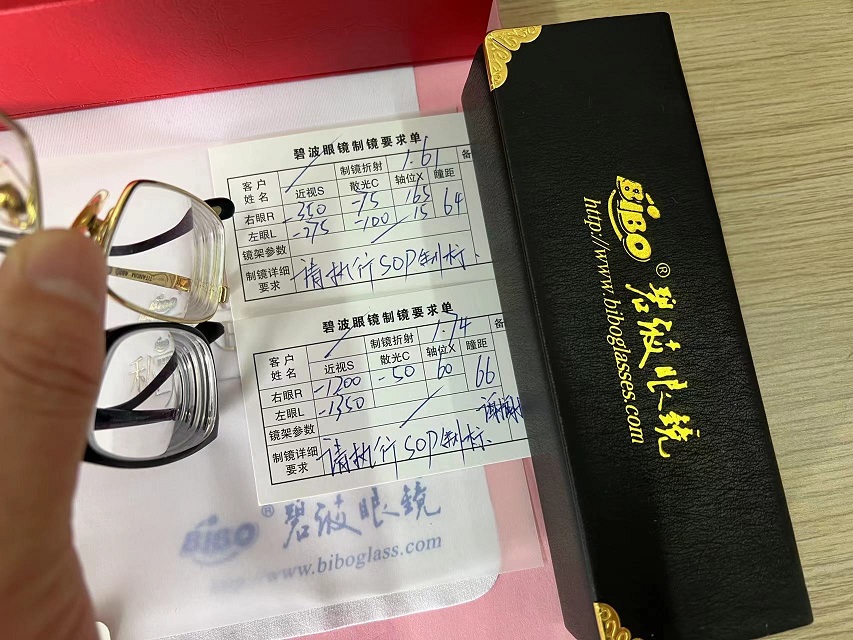 碧波眼镜制镜要求单
客户姓名 制镜折射 1.61 备
近视S 散光C 轴位X 瞳距
右眼R -350 -75 165 64
左眼L -275 -100 15
镜架参数
制镜详细要求 请执行SOP制标、
碧波眼镜制镜要求单
客户姓名 制镜折射 1.74 备
近视S 散光C 轴位X 瞳距
右眼R -1200 -50 60 66
左眼L -1350
镜架参数
制镜详细要求 请执行SOP制标、
BiBO® 碧波眼鏡
www.biboglass.com
BiBO® 碧波眼鏡
http://www.biboglasses.com
TITANIUM